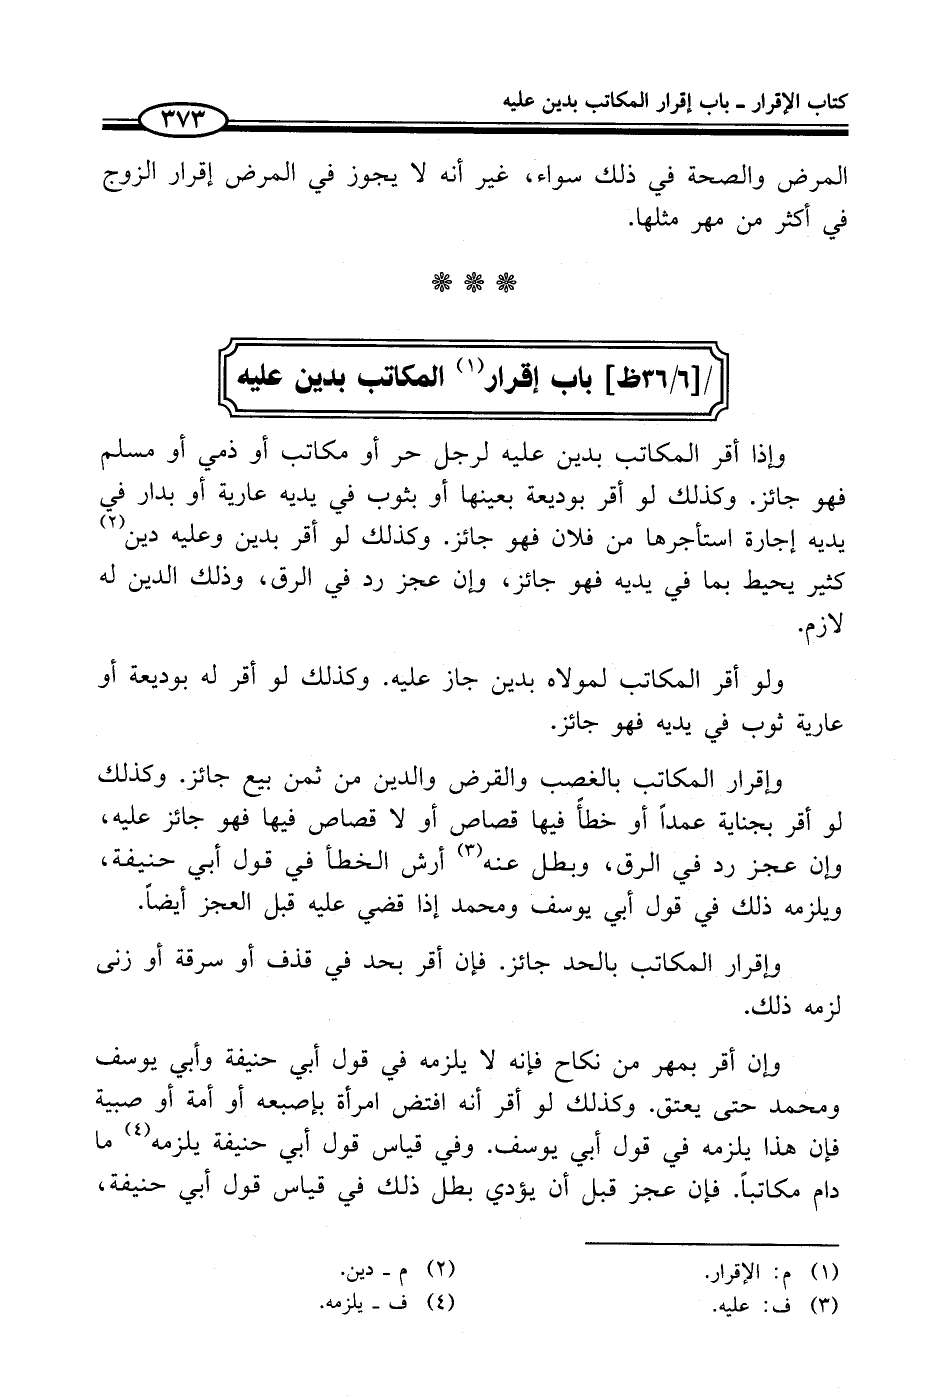 كتاب الإقرار ـ باب إقرار المكاتب بدين عليه
٣٧٣
المرض والصحة في ذلك سواء، غير أنه لا يجوز في المرض إقرار الزوج
في أكثر من مهر مثلها.
❊ ❊ ❊
/[٣٦/٦ظ] باب إقرار(١) المكاتب بدين عليه
وإذا أقر المكاتب بدين عليه لرجل حر أو مكاتب أو ذمي أو مسلم
فهو جائز. وكذلك لو أقر بوديعة بعينها أو بثوب في يديه عارية أو بدار في
يديه إجارة استأجرها من فلان فهو جائز. وكذلك لو أقر بدين وعليه دين(٢)
كثير يحيط بما في يديه فهو جائز، وإن عجز رد في الرق، وذلك الدين له
لازم.
ولو أقر المكاتب لمولاه بدين جاز عليه. وكذلك لو أقر له بوديعة أو
عارية ثوب في يديه فهو جائز.
وإقرار المكاتب بالغصب والقرض والدين من ثمن بيع جائز. وكذلك
لو أقر بجناية عمداً أو خطأً فيها قصاص أو لا قصاص فيها فهو جائز عليه،
وإن عجز رد في الرق، وبطل عنه(٣) أرش الخطأ في قول أبي حنيفة،
ويلزمه ذلك في قول أبي يوسف ومحمد إذا قضي عليه قبل العجز أيضاً.
وإقرار المكاتب بالحد جائز. فإن أقر بحد في قذف أو سرقة أو زنى
لزمه ذلك.
وإن أقر بمهر من نكاح فإنه لا يلزمه في قول أبي حنيفة وأبي يوسف
ومحمد حتى يعتق. وكذلك لو أقر أنه افتض امرأة بإصبعه أو أمة أو صبية
فإن هذا يلزمه في قول أبي يوسف. وفي قياس قول أبي حنيفة يلزمه(٤) ما
دام مكاتباً. فإن عجز قبل أن يؤدي بطل ذلك في قياس قول أبي حنيفة،
(١) م: الإقرار.
(٢) م ـ دين.
(٣) ف: عليه.
(٤) ف ـ يلزمه.